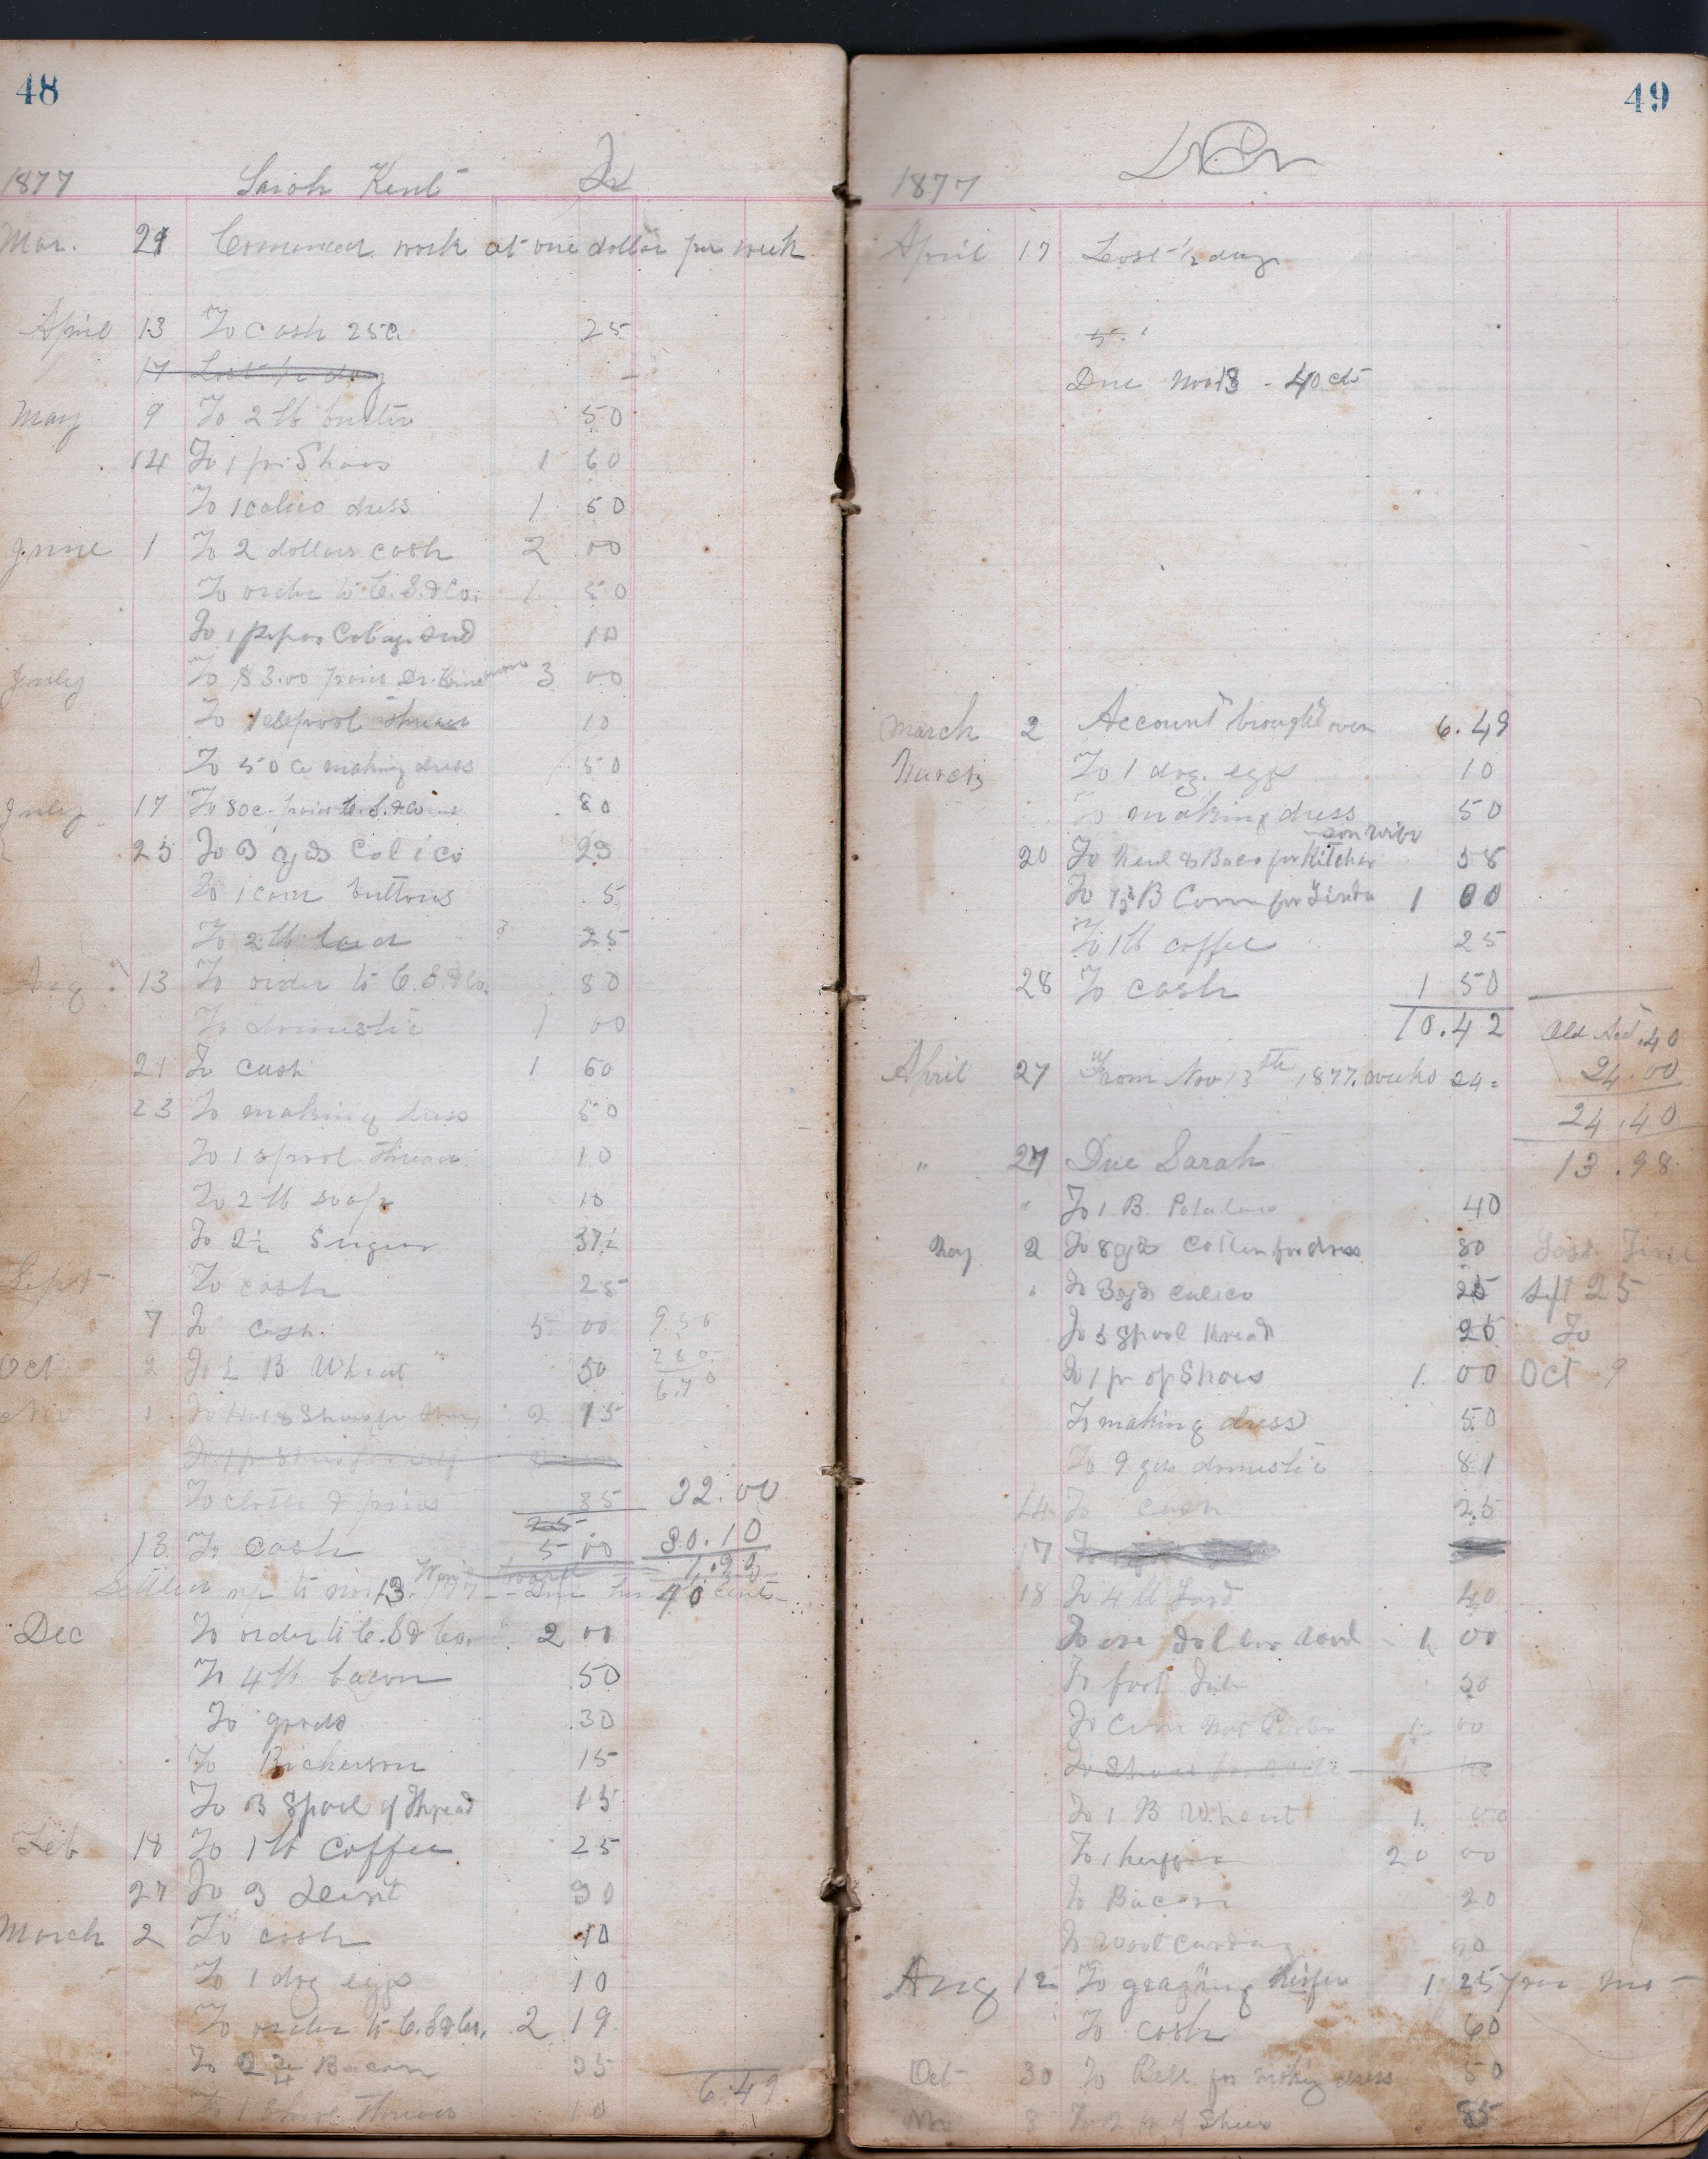 48
1877 Sarah Kent Dr
Mar. 29 Comenced work at one dollar per week
April 13 To cash 25c. 25
17 Lost 1/2 day
May 9 To 2 lb butter 50
14 To 1 pr Shoes 1 60
To 1 calico dress 1 50
June 1 To 2 dollars cash 2 00
To order to C. S. & Co. 1 50
To 1 paper Cabag seed 10
July To $3.00 paid Dr. 3 00
To 1 spool thread 10
To 50 c making dress 50
July 17 To 80c paid C. S. & Co 80
25 To 3 yds Calico 25
To 1 card buttons 5
To 2 lb lard 25
Aug 13 To order to C. S. & Co. 80
To domestic 1 00
21 To cash 1 60
23 To making dress 50
To 1 spool thread 10
To 2 lb soap 10
To 2 1/2 Sugar 37 1/2
Sept To cash 25
7 To Cash. 5 00 9.50
2 80
6.70
Oct 2 To 1/2 B Wheat 50
Nov 1 To Hat & Shoes for 2 15
To 1 pr Shoes for self
To cloth & 35 32.00
13 To Cash 5 00 30.10
1.90
Settled up to Nov 13 1877 - Due her 40 cents -
Dec To order to C. S. & Co. 2 00
To 4 lb bacon 50
To goods 30
To Bickerson 15
To 3 Spool of Thread 15
Feb 18 To 1 lb Coffee 25
27 To 3 30
March 2 To cash 10
To 1 doz eggs 10
To order to C. S. & Co. 2 19
To 2 3/4 Bacon 35
To 1 Spool Thread 10 6.49
49
1877 Cr
April 17 Lost 1/2 day
Due Nov 13 - 40 cts
March 2 Account brought over 6.49
March To 1 doz. eggs 10
To making dress 50
20 To Meal & Baco for Kitcher son wife 58
To 1 B Corn for 1 00
To 1 lb coffee 25
28 To cash 1 50
10.42 Old Act .40
April 27 From Nov 13th 1877. weeks 24 = 24.00
24.40
" 27 Due Sarah 13.98
" To 1 B. Potatoes 40
May 2 To 8 yds Cotten for dress 80 Lost Time
" To 3 yds calico 25 Sept 25
To 5 Spool thread 25 To
To 1 pr of Shoes 1. 00 Oct 9
To making dress 50
To 9 yds domestic 81
14 To cash 25
17 To
18 To 4 lb Lard 40
To one dollar 1 00
To 50
To Corn 1. 00
To Shoes
To 1 B Wheat 1. 00
To 1 heffer 20 00
To Bacon 20
To Wool Carding 90
Aug 12 To grazing heifer 1 25 per mo -
To cash 60
Oct 30 To Bell for making dress 50
Nov 8 To pr of Shoes 85